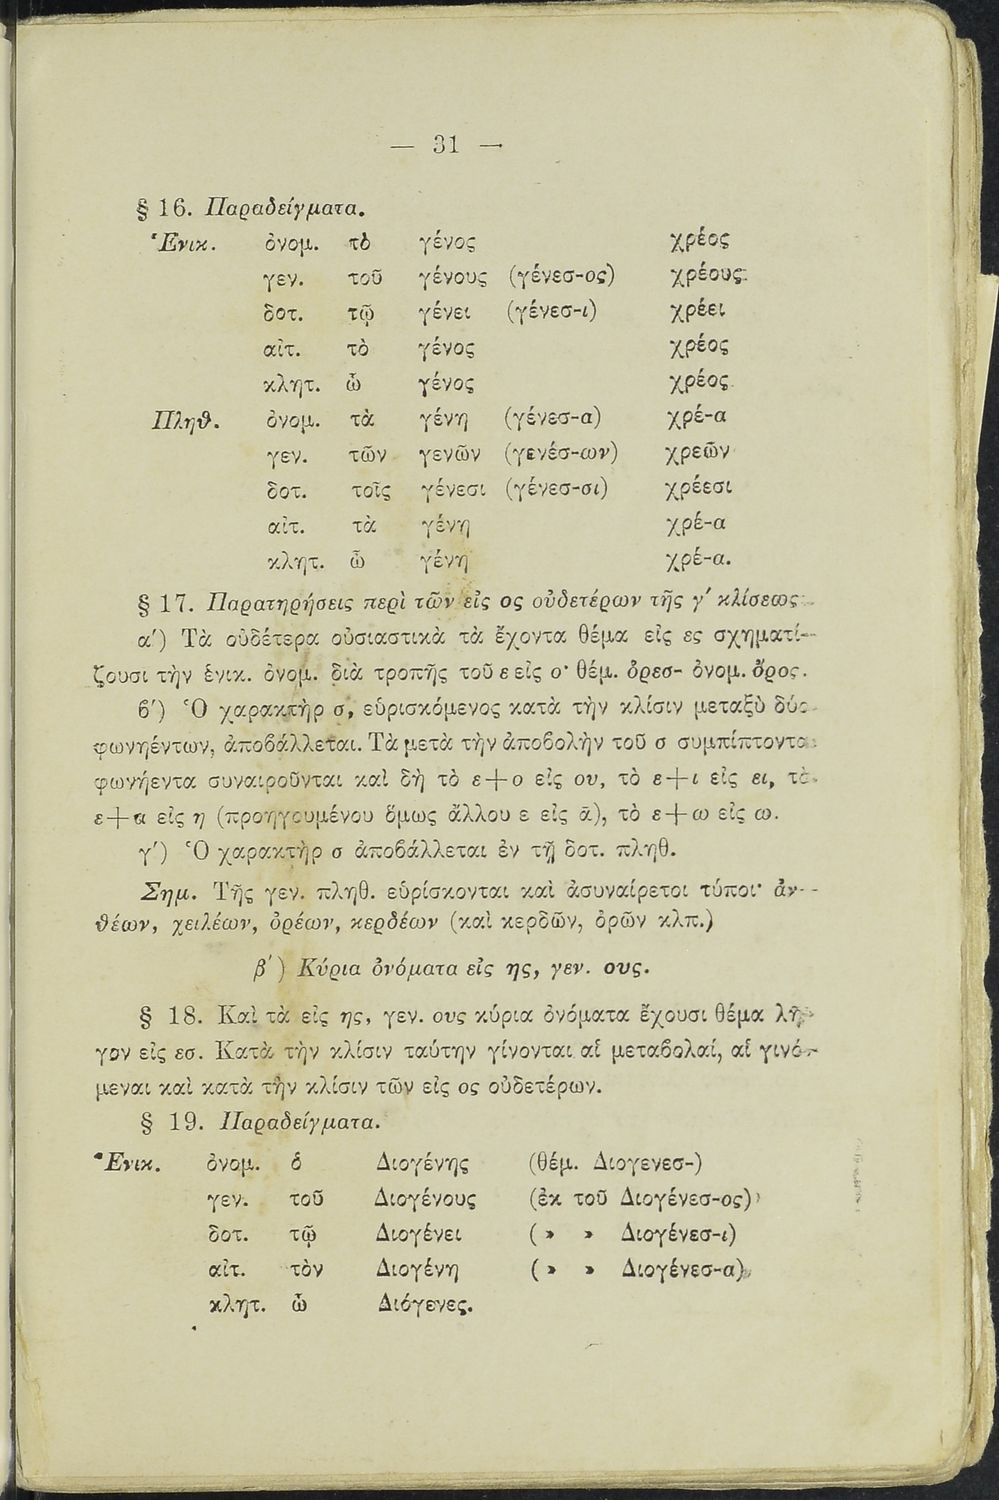 — 31 —
§ 16. Παραδείγματα.
Ἑνικ. ὀνομ. τὸ γένος χρέος
γεν. τοῦ γένους (γένεσ-ος) χρέους
δοτ. τῷ γένει (γένεσ-ι) χρέει
αἰτ. τὸ γένος χρέος
κλητ. ὦ γένος χρέος
Πληθ. ὀνομ. τὰ γένη (γένεσ-α) χρέ-α
γεν. τῶν γενῶν (γενέσ-ων) χρεῶν
δοτ. τοῖς γένεσι (γένεσ-σι) χρέεσι
αἰτ. τὰ γένη χρέ-α
κλητ. ὦ γένη χρέ-α.
§ 17. Παρατηρήσεις περὶ τῶν εἰς ος οὐδετέρων τῆς γ΄ κλίσεως
α΄) Τὰ οὐδέτερα οὐσιαστικὰ τὰ ἔχοντα θέμα εἰς ες σχηματί-
ζουσι τὴν ἑνικ. ὀνομ. διὰ τροπῆς τοῦ ε εἰς ο· θέμ. ὀρεσ- ὀνομ. ὄρος.
β΄) Ὁ χαρακτὴρ σ, εὑρισκόμενος κατὰ τὴν κλίσιν μεταξὺ δύο
φωνηέντων, ἀποβάλλεται. Τὰ μετὰ τὴν ἀποβολὴν τοῦ σ συμπίπτοντα
φωνήεντα συναιροῦνται καὶ δὴ τὸ ε+ο εἰς ου, τὸ ε+ι εἰς ει, τὸ
ε+α εἰς η (προηγουμένου ὅμως ἄλλου ε εἰς ᾱ), τὸ ε+ω εἰς ω.
γ΄) Ὁ χαρακτὴρ σ ἀποβάλλεται ἐν τῇ δοτ. πληθ.
Σημ. Τῆς γεν. πληθ. εὑρίσκονται καὶ ἀσυναίρετοι τύποι· ἀν-
θέων, χειλέων, ὀρέων, κερδέων (καὶ κερδῶν, ὀρῶν κλπ.)
β΄) Κύρια ὀνόματα εἰς ης, γεν. ους.
§ 18. Καὶ τὰ εἰς ης, γεν. ους κύρια ὀνόματα ἔχουσι θέμα λῆ-
γον εἰς εσ. Κατὰ τὴν κλίσιν ταύτην γίνονται αἱ μεταβολαί, αἱ γινό-
μεναι καὶ κατὰ τὴν κλίσιν τῶν εἰς ος οὐδετέρων.
§ 19. Παραδείγματα.
Ἑνικ. ὀνομ. ὁ Διογένης (θέμ. Διογενεσ-)
γεν. τοῦ Διογένους (ἐκ τοῦ Διογένεσ-ος)
δοτ. τῷ Διογένει ( » » Διογένεσ-ι)
αἰτ. τὸν Διογένη ( » » Διογένεσ-α)
κλητ. ὦ Διόγενες.